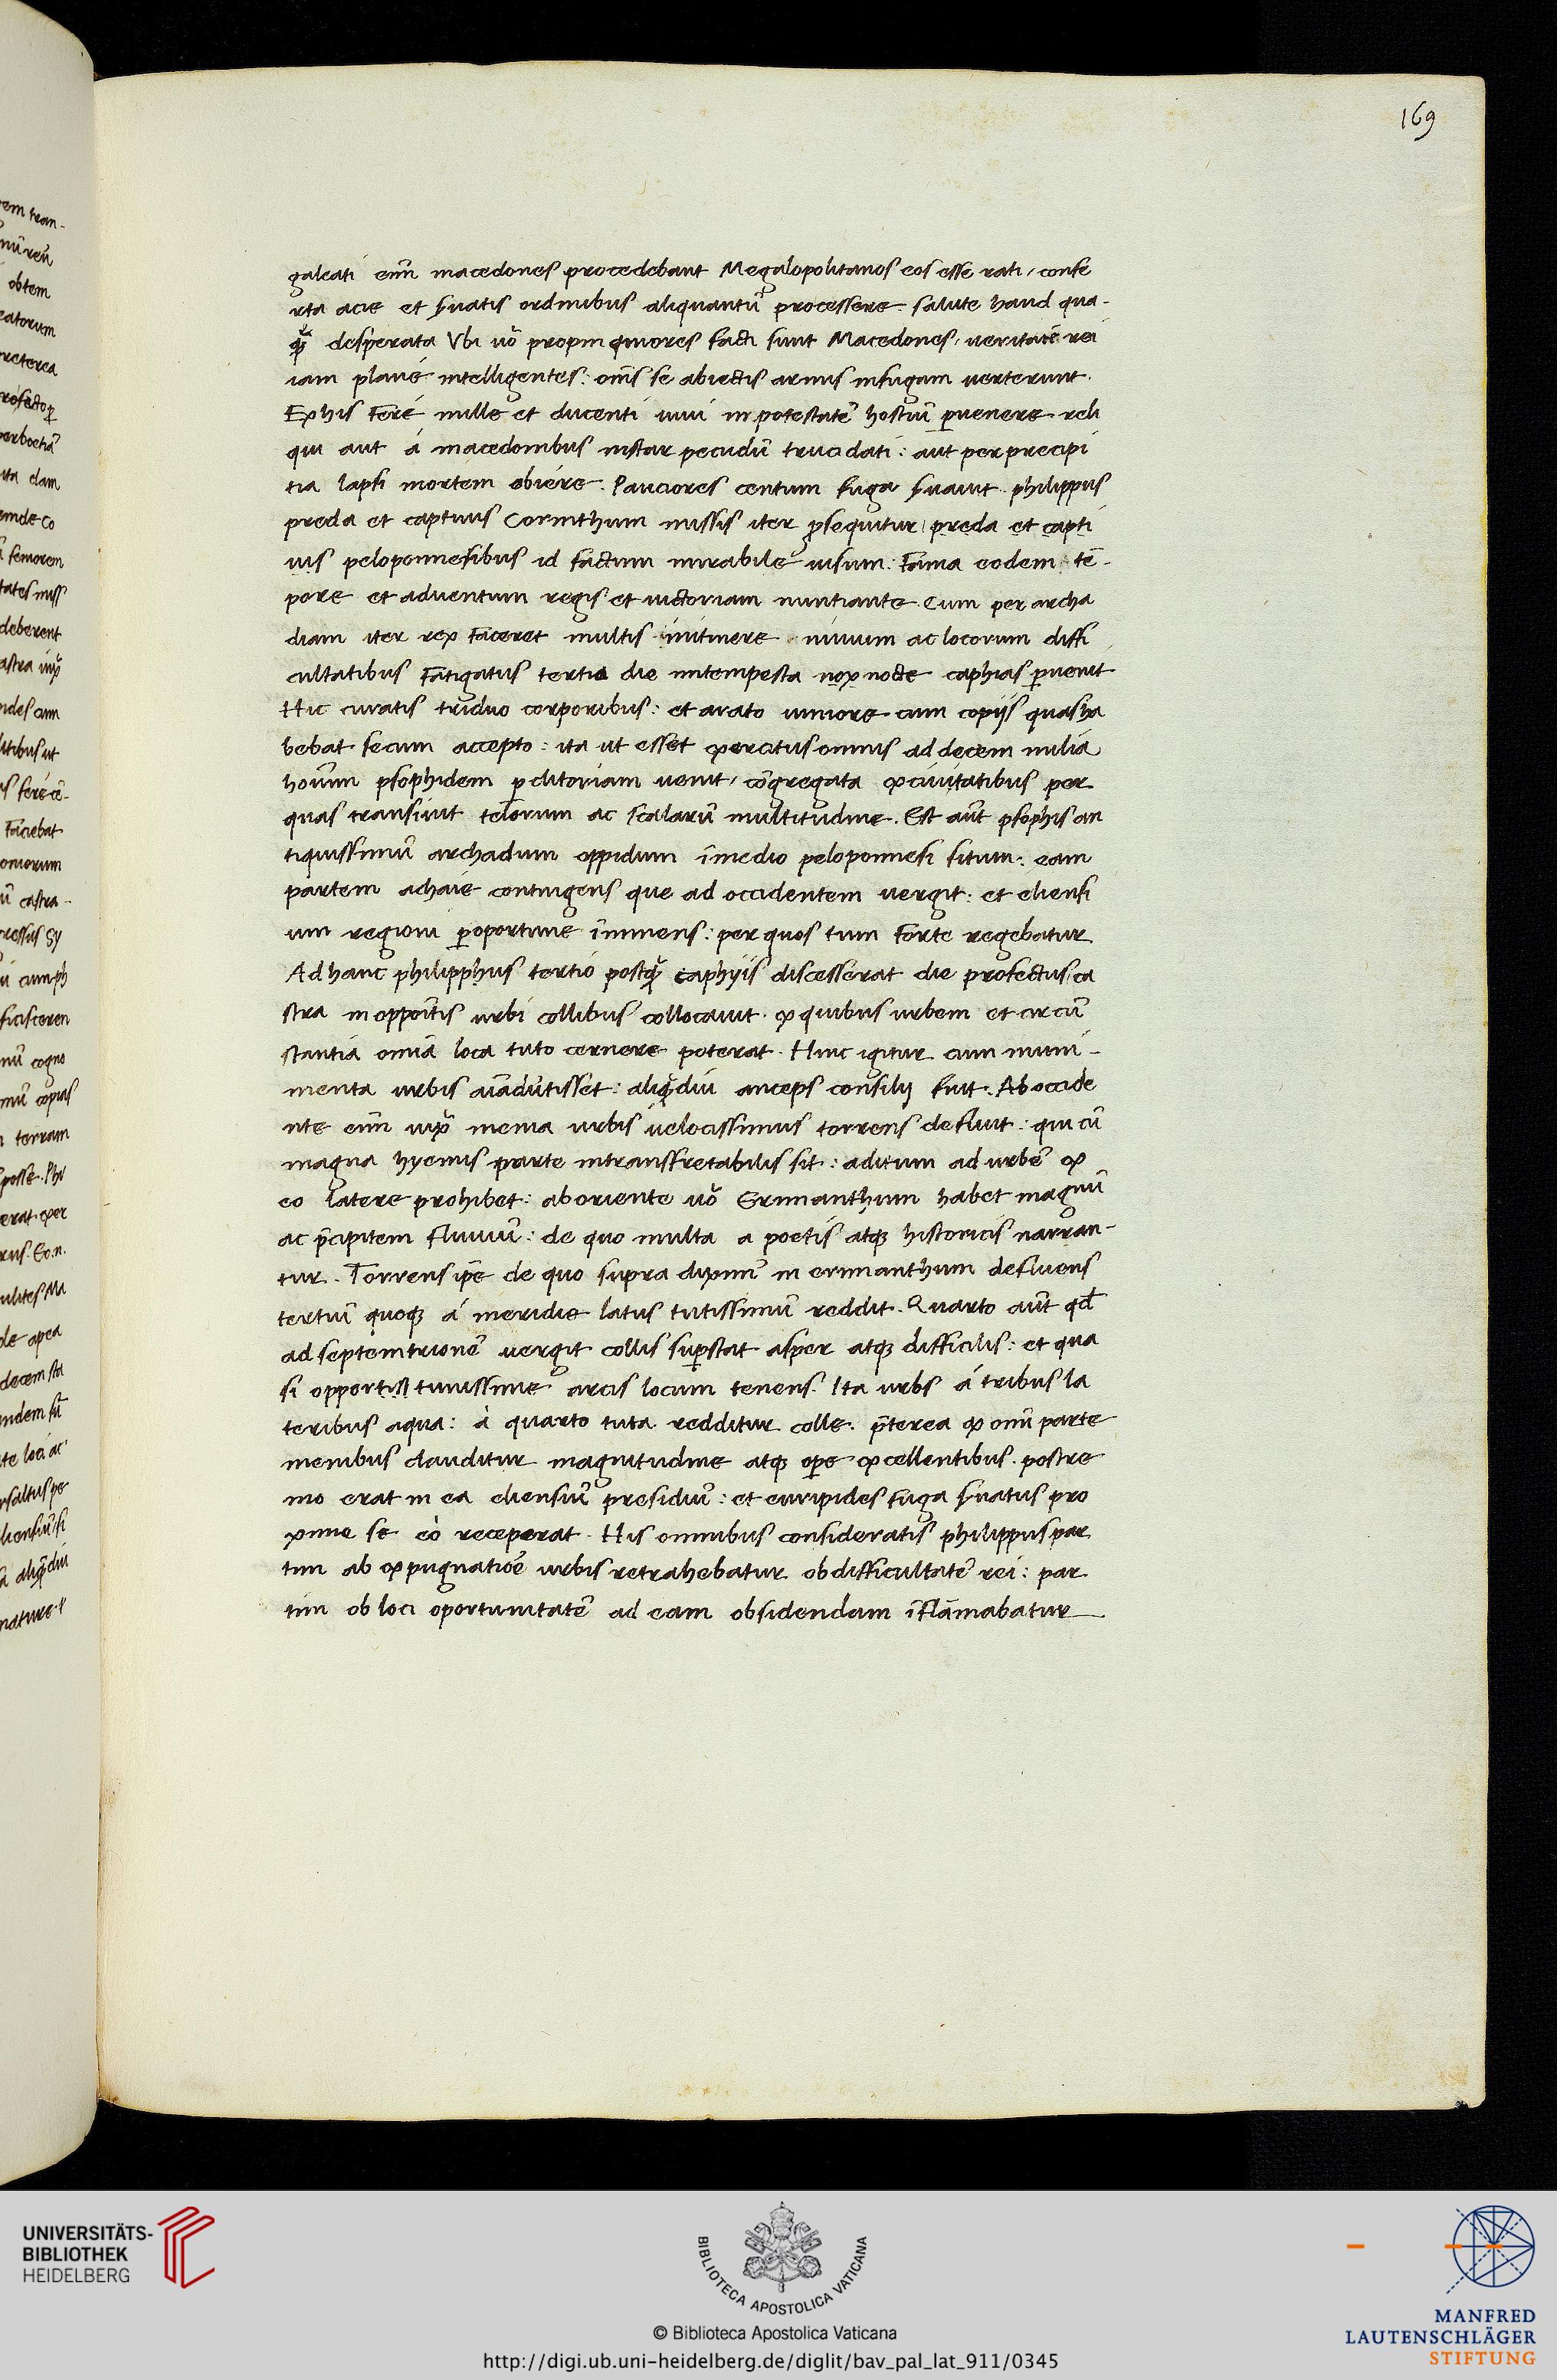 169
galeati enī macedones procedebant Megalopolitanos eos esse rati, confe
rta acie et s̄uatis ordinibus aliquantū processere. salute haud qua-
q̄ desperata Vbi ūo propin quiores facti sunt Macedones, ueritatē rei
iam plané intelligentes: om̄s se abiectis armis infugam uerterunt.
Ex his feré mille et ducenti uiui in potestatē hostiū ꝑuenere reli
qui aut á macedonibus instar pecudū trucidati: aut per precipi
tia lapsi mortem obiére. Pauciores centum fuga s̄uauit. philippus
preda et captiuis Corinthum missis iter ꝓsequitur preda et capti
uis peloponnesibus id factum mirabile uisum: Fama eodem tē-
pore et aduentum regis et uictoriam nuntiante. Cum per archa
diam iter rex faceret multis initinere niuium ac locorum diffi
cultatibus Fatigatus tertia die intempesta nox nocte caphias ꝑuenit
Hic curatis triduo corporibus: et arato iuniore cum copijs quas ha
bebat secum accepto: ita ut esset exercitus omnis ad decem milia
hoīum psophidem ꝑ clitoriam uenit, cōgregata ex ciuitatibus per
quas transiuit telorum ac scalarū multitudine. Est aūt psophis an
tiquissimū archadum oppidum ī medio peloponnesi situm: eam
partem achaie contingens que ad occidentem uergit: et eliensi
um regioni ꝑoportune īminens: per quos tum Forte regebatur
Ad hanc philipphus tertio postq̄ caphyis discesserat die profectus, ca
stra in oppoītis urbi collibus collocauit. ex quibus urbem et circū
stantia omīa loca tuto cernere poterat. Hinc igitur cum muni-
menta urbis aīaduertisset: aliq̄diu anceps consilij fuit. Ab occide
nte enī iuxͣ menia urbis uelocissimus torrens defluit: qui cū
magna hyemis parte intransfretabilis sit: aditum ad urbē ex
eo latere prohibet: ab oriente ūo Erimanthum habet magnū
ac p̄cipitem fluuiū: de quo multa a poetis atqꝫ historicis narran-
tur. Torrens ip̄e de quo supra diximꝰ in erimanthum defluens
tertiū quoqꝫ á meridie latus tutissimū reddit. Quarto aūt qd̄
ad septemtrionē uergit collis suꝑstat asper atqꝫ difficilis: et qua
si opportist tunissime arcis locum tenens. Ita urbs á tribus la
teribus aqua: á quarto tuta redditur colle. p̄terea ex omī parte
menibus clauditur magnitudine atqꝫ oꝑe excellentibus. postre
mo erat in ea eliensiū presidiū: et euripides fuga s̄uatus pro
xime se eò receperat. His omnibus consideratis philippus par
tim ab expugnatiōe urbis retrahebatur ob difficultatē rei: par
tim ob loci oportunitatē ad eam obsidendam īflāmabatur
UNIVERSITÄTS-
BIBLIOTHEK
HEIDELBERG
BIBLIOTECA APOSTOLICA VATICANA
© Biblioteca Apostolica Vaticana
http://digi.ub.uni-heidelberg.de/diglit/bav_pal_lat_911/0345
MANFRED
LAUTENSCHLÄGER
STIFTUNG